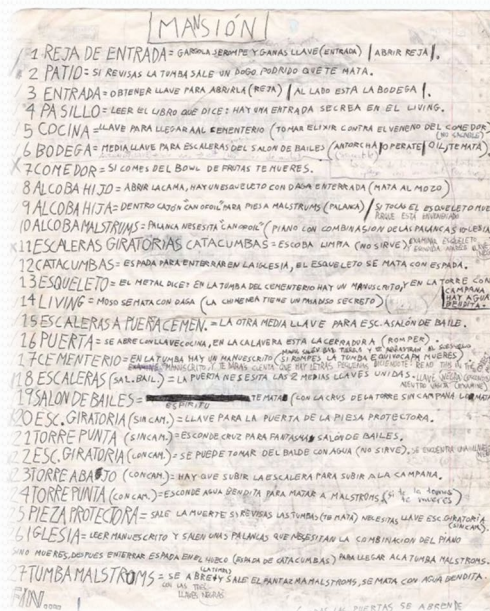 MANSIÓN
1 REJA DE ENTRADA = GARGOLA SE ROMPE Y GANAS LLAVE (ENTRADA) / ABRIR REJA /.
2 PATIO = SI REVISAS LA TUMBA SALE UN DOGO PODRIDO QUE TE MATA.
3 ENTRADA = OBTENER LLAVE PARA ABRIRLA (REJA) / AL LADO ESTA LA BODEGA /.
4 PASILLO = LEER EL LIBRO QUE DICE: HAY UNA ENTRADA SECREA EN EL LIVING.
5 COCINA = LLAVE PARA LLEGAR AL CEMENTERIO (TOMAR ELIXIR CONTRA EL VENENO DEL COMEDOR)
6 BODEGA = MEDIA LLAVE PARA ESCALERAS DEL SALON DE BAILES (ANTORCHA / OPERATE OIL / TE MATA).
7 COMEDOR = SI COMES DEL BOWL DE FRUTAS TE MUERES.
8 ALCOBA HIJO = ABRIR LA CAMA, HAY UN ESQUELETO CON DAGA ENTERRADA (MATA AL MOZO)
9 ALCOBA HIJA = DENTRO CAJÓN "CAN OF OIL" PARA PIESA MALSTRUMS (PALANCA) / SI TOCAS EL ESQUELETO MUE
PORQUE ESTÁ ENVENENADO
10 ALCOBA MALSTRUMS = PALANCA NESESITA "CAN OF OIL" (PIANO CON COMBINACION DE LAS PALANCAS IGLESIA
11 ESCALERAS GIRATORIAS CATACUMBAS = ESCOBA LIMPIA (NO SIRVE) EXAMINA ESQUELETO
12 CATACUMBAS = ESPADA PARA ENTERRAR EN LA IGLESIA, EL ESQUELETO SE MATA CON ESPADA.
13 ESQUELETO = EL METAL DICE: EN LA TUMBA DEL CEMENTERIO HAY UN MANUSCRITO, Y EN LA TORRE CON
CAMPANA HAY AGUA BENDITA.
14 LIVING = MOSO SE MATA CON DAGA (LA CHIMENEA TIENE UN PASADISO SECRETO)
15 ESCALERAS A PUERÑA CEMEN. = LA OTRA MEDIA LLAVE PARA ESC. A SALÓN DE BAILE.
16 PUERTA = SE ABRE CON LLAVE COCINA, EN LA CALAVERA ESTA LA CERRADURA (ROMPER).
17 CEMENTERIO = EN LA TUMBA HAY UN MANUSCRITO (SI ROMPES LA TUMBA EQUIVOCADA MUERES)
MANUSCRITO, Y TE DARAS CUENTA QUE HAY LETRAS PEQUEÑAS DICIENDOTE READ THIS IN THE
18 ESCALERAS (SAL. BAIL.) = LA PUERTA NESESITA LAS 2 MEDIAS LLAVES UNIDAS
19 SALON DE BAILES = ESPIRITU TE MATA (CON LA CRUS DE LA TORRE SIN CAMPANA LO MATA
20 ESC. GIRATORIA (SIN CAM.) = LLAVE PARA LA PUERTA DE LA PIESA PROTECTORA.
21 TORRE PUNTA (SIN CAM.) = ESCONDE CRUZ PARA FANTASMA SALÓN DE BAILES.
22 ESC. GIRATORIA (CON CAM.) = SE PUEDE TOMAR DEL BALDE CON AGUA (NO SIRVE). SE ENCUENTRA UNA
23 TORRE ABAJO (CON CAM.) = HAY QUE SUBIR LA ESCALERA PARA SUBIR A LA CAMPANA.
24 TORRE PUNTA (CON CAM.) = ESCONDE AGUA BENDITA PARA MATAR A MALSTROMS (si te la tomas te mueres)
25 PIEZA PROTECTORA = SALE LA MUERTE SI REVISAS LAS TUMBAS (TE MATA) NECESITAS LLAVE ESC. GIRATORIA
(SIN CAM.)
26 IGLESIA = LEER MANUSCRITO Y SALEN UNAS PALANCAS QUE NECESITAN LA COMBINACION DEL PIANO
SINO MUERES, DESPUES ENTERRAR ESPADA EN EL HUECO (ESPADA DE CATACUMBAS) PARA LLEGAR A LA TUMBA MALSTROMS.
27 TUMBA MALSTROMS = SE ABRE (LA TUMBA) Y SALE EL FANTASMA MALSTROMS, SE MATA CON AGUA BENDITA.
CON LAS TRES
LLAVES NEGRAS